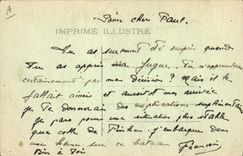 A
Mon cher Paul.
IMPRIMÉ ILLUSTRÉ
Tu as surement été surpris quand
tu as appris ma fugue. Tu n'approuveras
certainement pas ma décision ? Mais il le
fallait ainsi et aussitôt mon arrivée
je te donnerai des explications supplémentaires
je pars pour une situation plus stable
que celle de J'embarque dans
une heure sur ce bateau
Bien à toi François